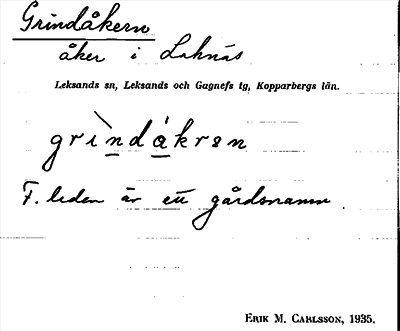 Grindåkern
åker i Laknäs
Leksands sn, Leksands och Gagnefs tg, Kopparbergs län.
grìndákrən
F. leden är ett gårdsnamn.
ERIK M. CARLSSON, 1935.